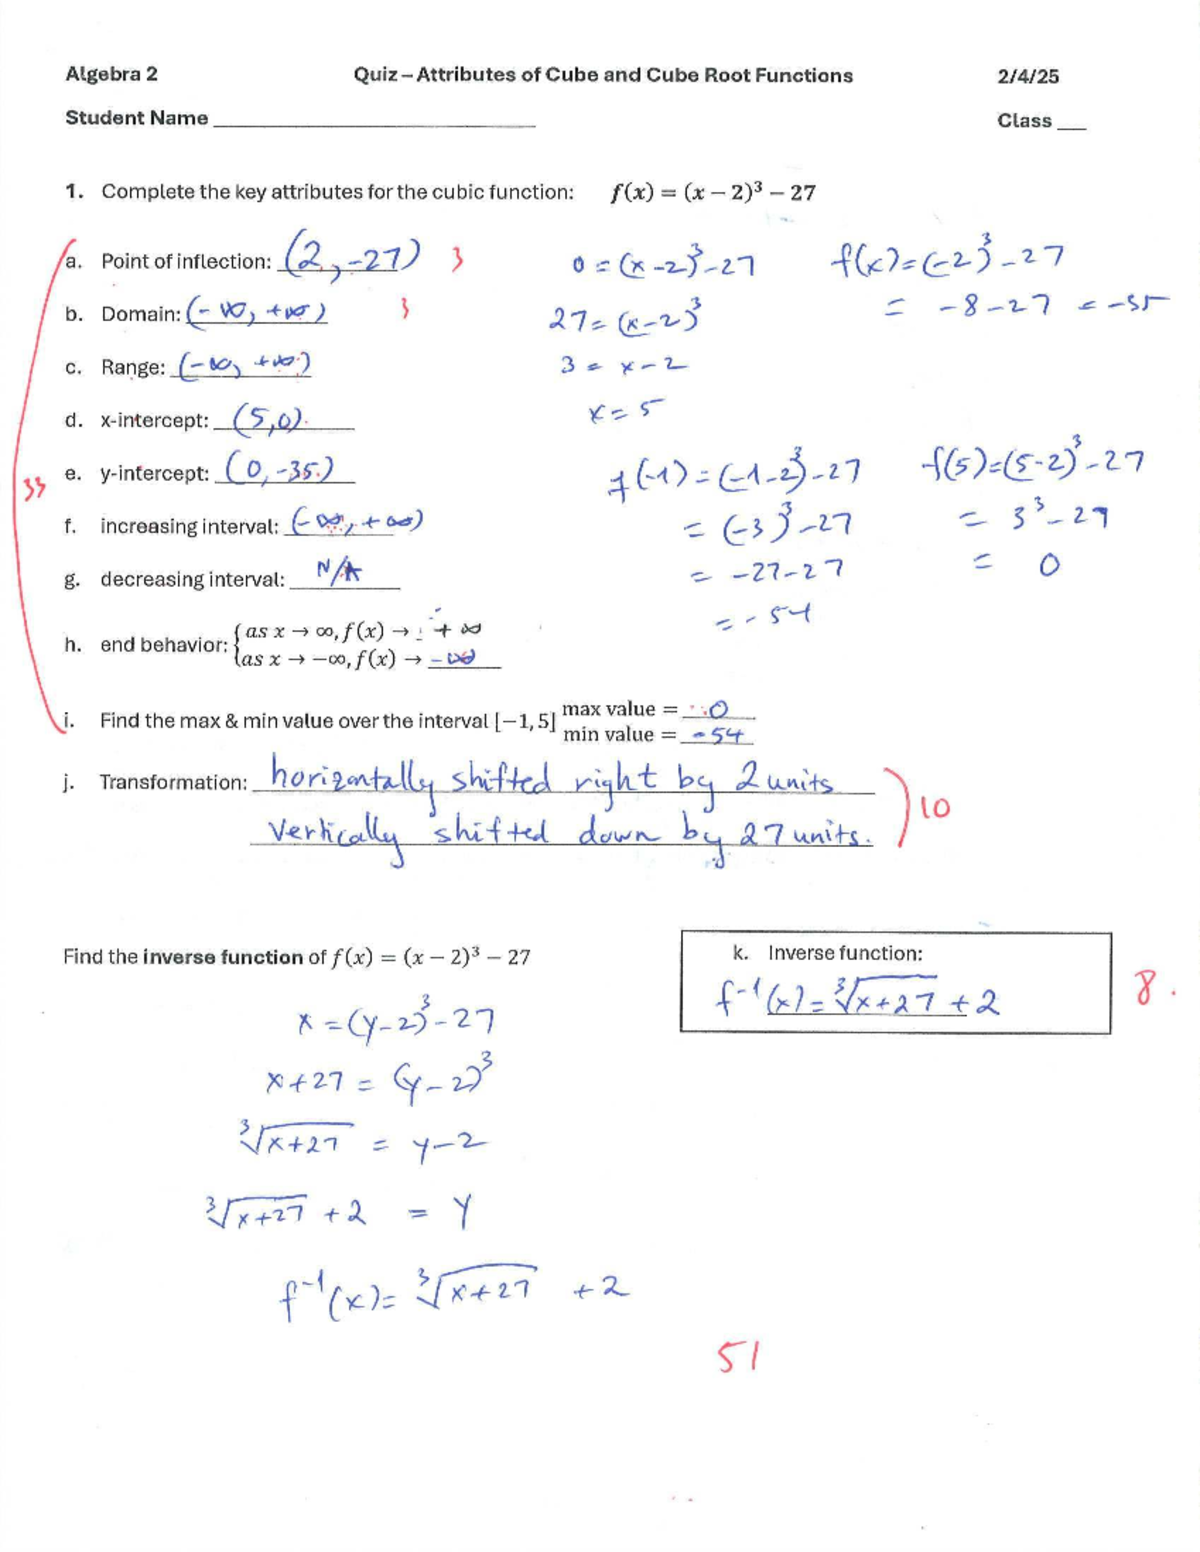 Algebra 2 Quiz – Attributes of Cube and Cube Root Functions 2/4/25
Student Name ____ Class ____
1. Complete the key attributes for the cubic function: f(x) = (x − 2)³ − 27
a. Point of inflection: (2, -27) 3
b. Domain: (-∞, +∞) 3
c. Range: (-∞, +∞)
d. x-intercept: (5,0)
33
e. y-intercept: (0, -35)
f. increasing interval: (-∞, +∞)
g. decreasing interval: N/A
h. end behavior: { as x → ∞, f(x) → +∞
as x → −∞, f(x) → -∞
i. Find the max & min value over the interval [−1, 5] max value = 0
min value = -54
j. Transformation: horizontally shifted right by 2 units
vertically shifted down by 27 units.
10
0 = (x-2)³-27
27 = (x-2)³
3 = x-2
x = 5
f(x) = (-2)³-27
= -8-27 = -35
f(-1) = (-1-2)³-27
= (-3)³-27
= -27-27
= -54
f(5) = (5-2)³-27
= 3³-27
= 0
Find the inverse function of f(x) = (x − 2)³ − 27
k. Inverse function:
f⁻¹(x) = ³√(x+27) + 2
8.
x = (y-2)³-27
x+27 = (y-2)³
³√(x+27) = y-2
³√(x+27) + 2 = y
f⁻¹(x) = ³√(x+27) + 2
51